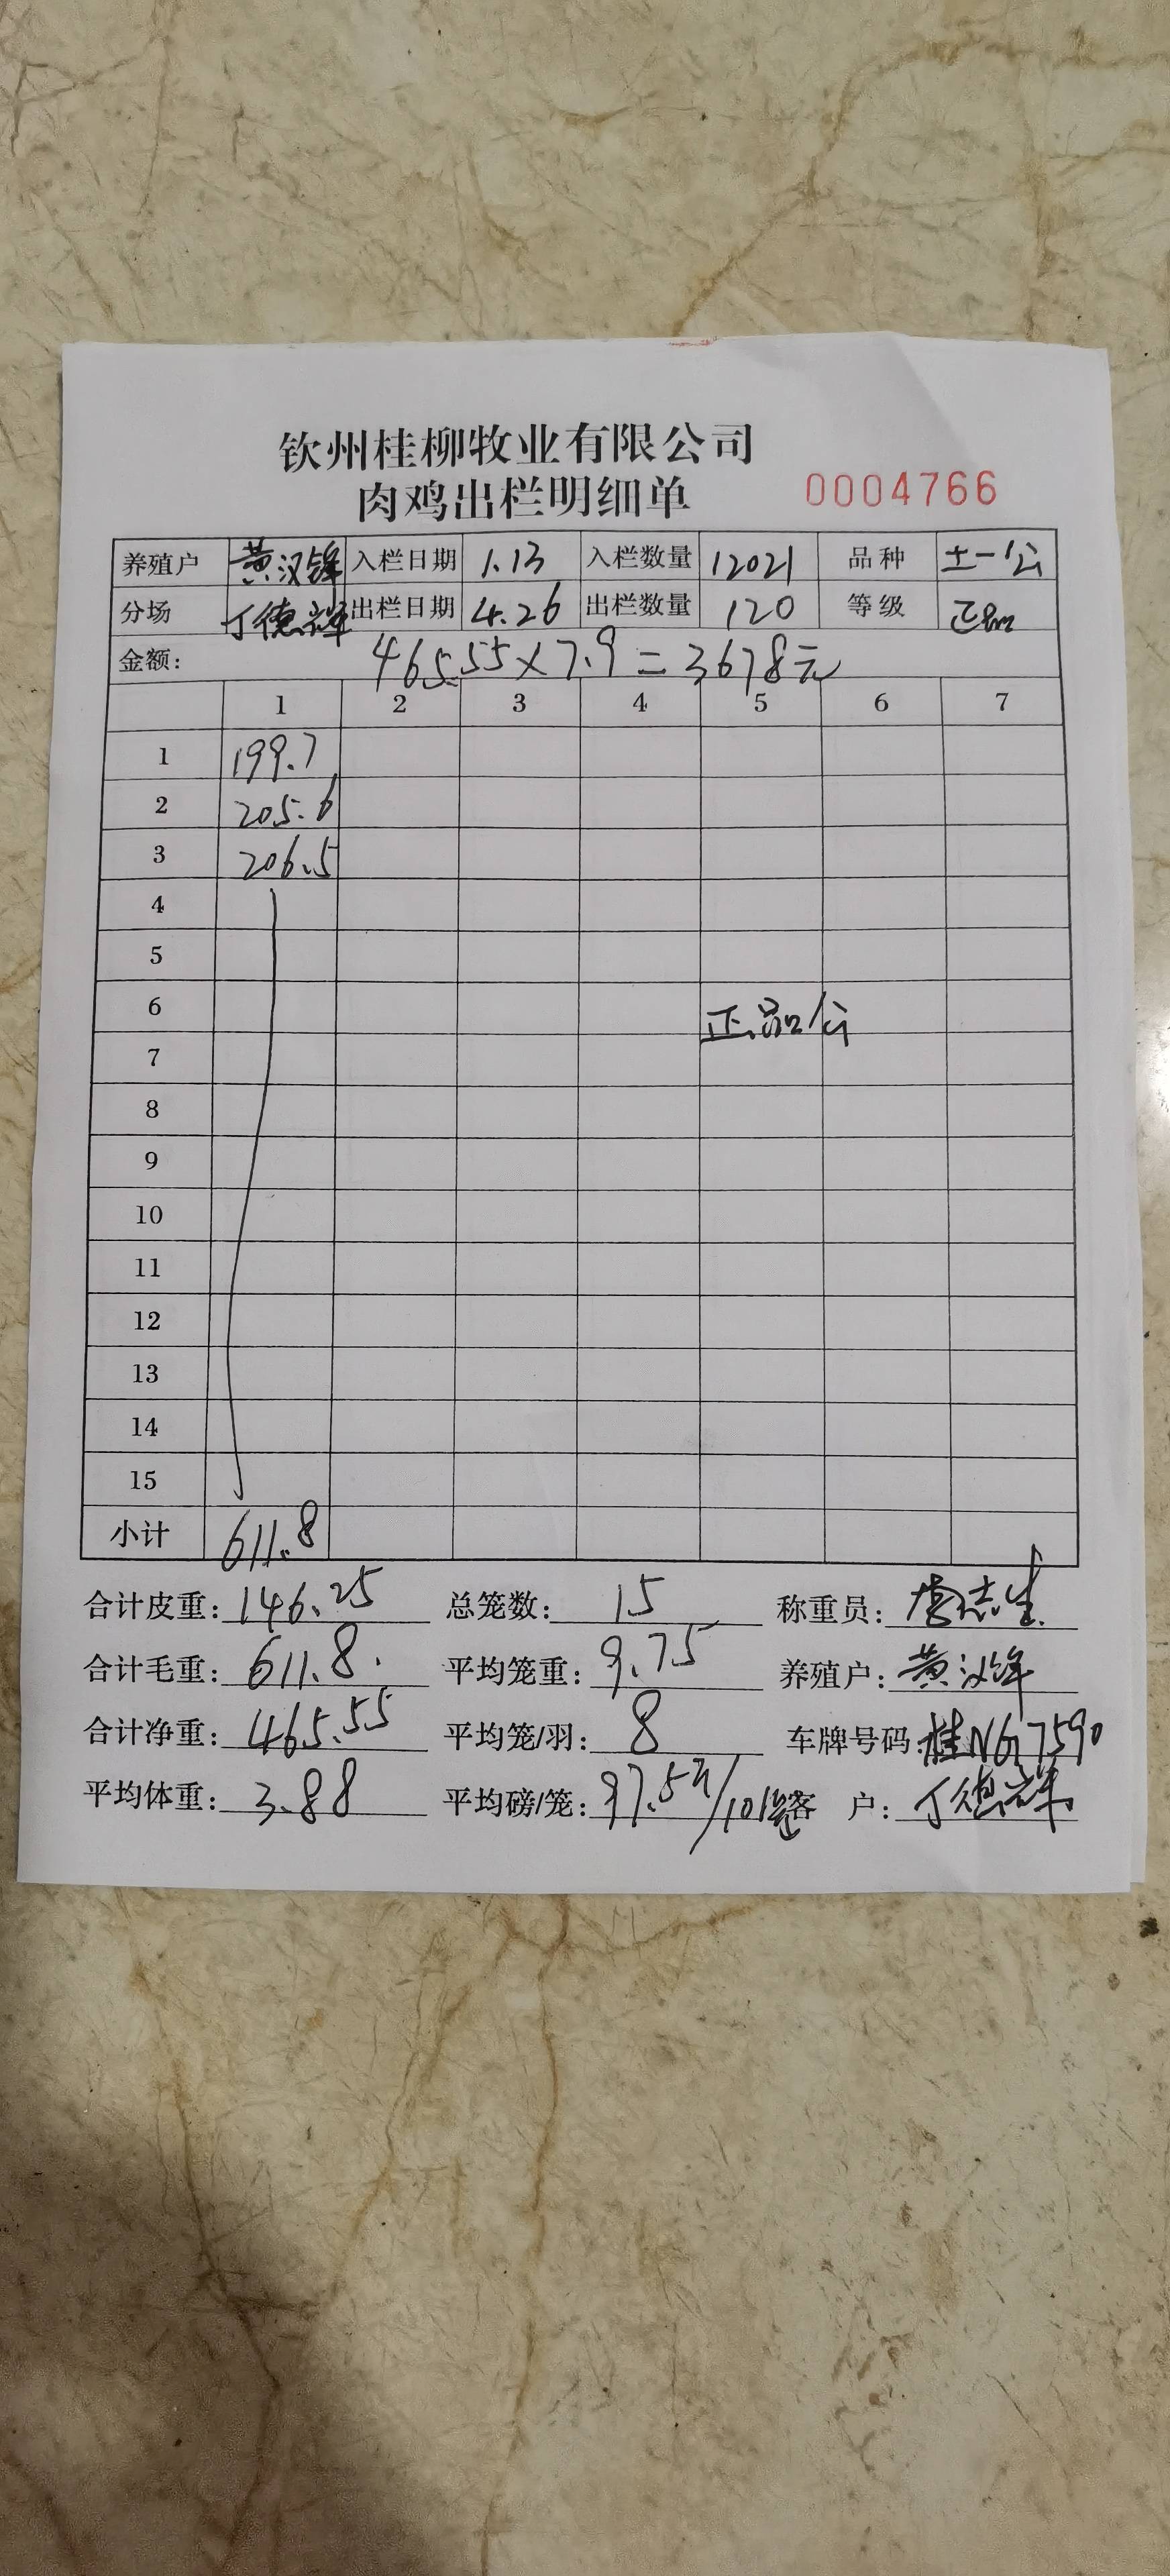 钦州桂柳牧业有限公司
肉鸡出栏明细单 0004766
养殖户 黄汉锋 入栏日期 1.13 入栏数量 12021 品种 土一公
分场 丁德祥 出栏日期 4.26 出栏数量 120 等级 正品
金额: 465.55×7.9=3678元
1 2 3 4 5 6 7
1 199.7
2 205.6
3 206.5
4
5
6 正品公
7
8
9
10
11
12
13
14
15
小计 611.8
合计皮重: 146.25 总笼数: 15 称重员: 志生
合计毛重: 611.8. 平均笼重: 9.75 养殖户: 黄汉锋
合计净重: 465.55 平均笼/羽: 8 车牌号码: 桂N67590
平均体重: 3.88 平均磅/笼: 97.5斤/10笼 客户: 丁德祥